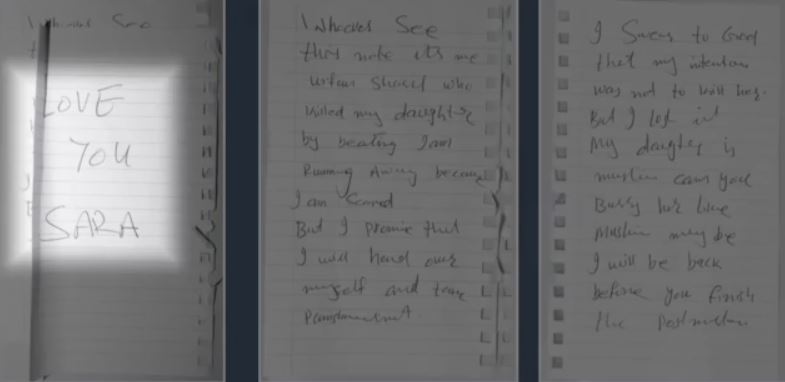 Whoever See
LOVE
YOU
SARA
Whoever See
this note its me
urfan Sharif who
killed my daughter
by beating I am
Running Away because
I am Scared
But I promise that
I will hand over
myself and take
Punishment.
I Swear to God
that my intention
was not to kill her.
But I lost it
My daughter is
muslim can you
Bury her like
Muslim may be
I will be back
before you finish
the Postmortem